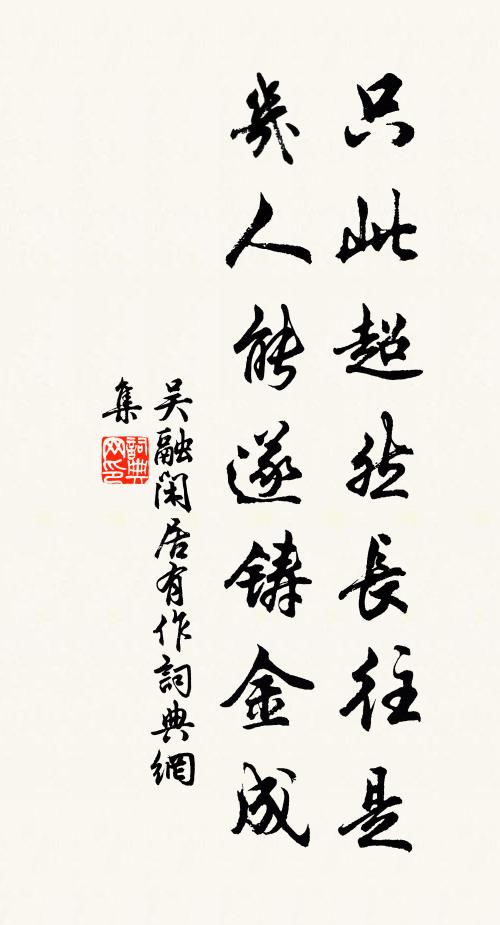 只此超然長往是
幾人能遂鑄金成
吴融闲居有作詞典網
集
詞典網印